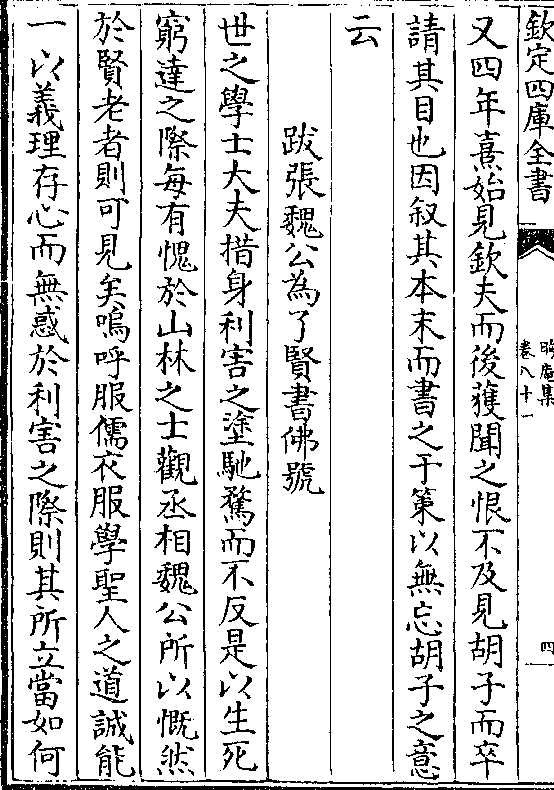 欽定四庫全書
晦庵集
卷八十一
四
又四年熹始見欽夫而後獲聞之恨不及見胡子而卒
請其目也因叙其本末而書之于策以無忘胡子之意
云
跋張魏公為了賢書佛號
世之學士大夫措身利害之塗馳騖而不反是以生死
窮達之際每有愧於山林之士觀丞相魏公所以慨然
於賢老者則可見矣嗚呼服儒衣服學聖人之道誠能
一以義理存心而無惑於利害之際則其所立當如何